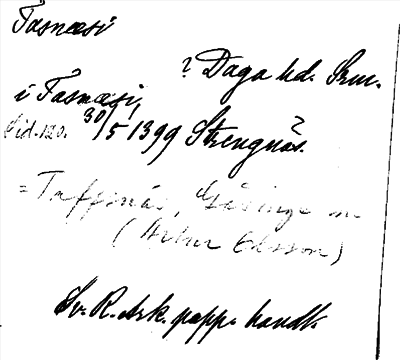 Tasnæsi
? Daga hd. Srm.
i Tasnæsi,
Sid. 120. 30/5 1399 Strengnäs. ?
= Taffsnäs, Gåsinge sn
(Artur Olsson)
Sv. R. Ark. papp. handl.